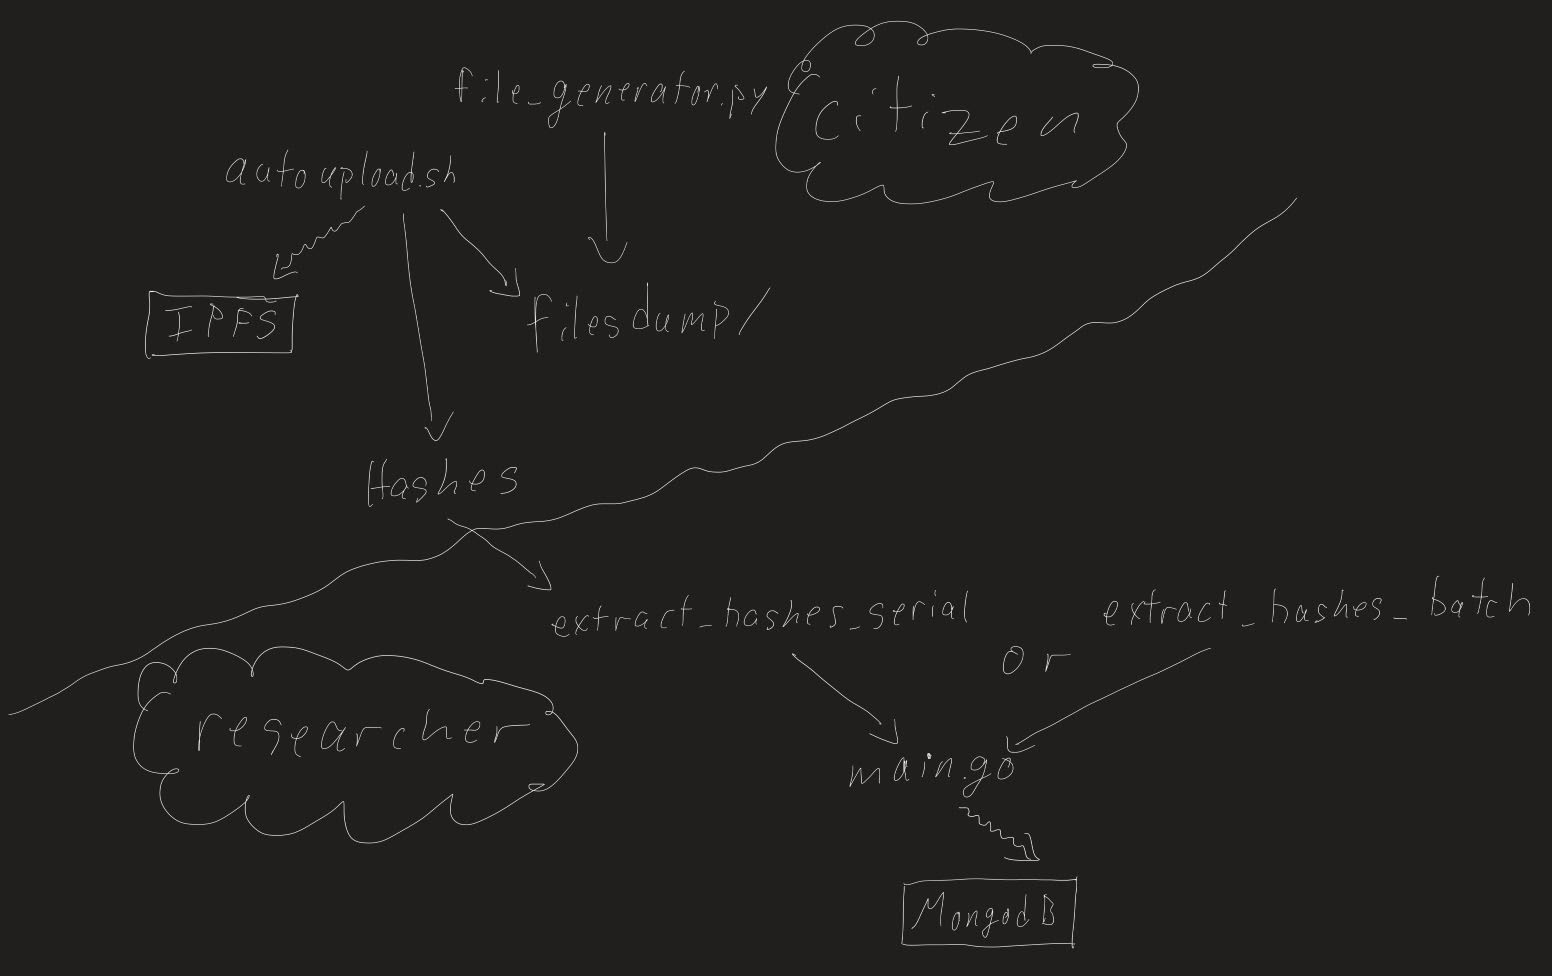 file_generator.py
citizen
autoupload.sh
IPFS
filesdump/
Hashes
extract_hashes_serial
or
extract_hashes_batch
researcher
main.go
MongodB